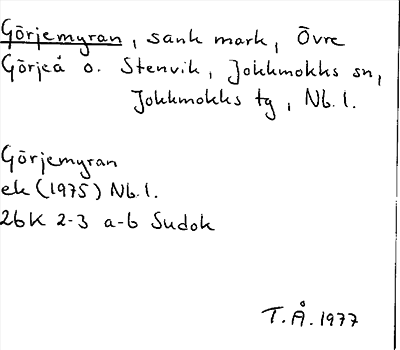 Görjemyran, sank mark, Övre
Görjeå o. Stenvik, Jokkmokks sn,
Jokkmokks tg, Nb. l.
Görjemyran
ek (1975) Nb. l.
26K 2-3 a-b Sudok
T.Å. 1977